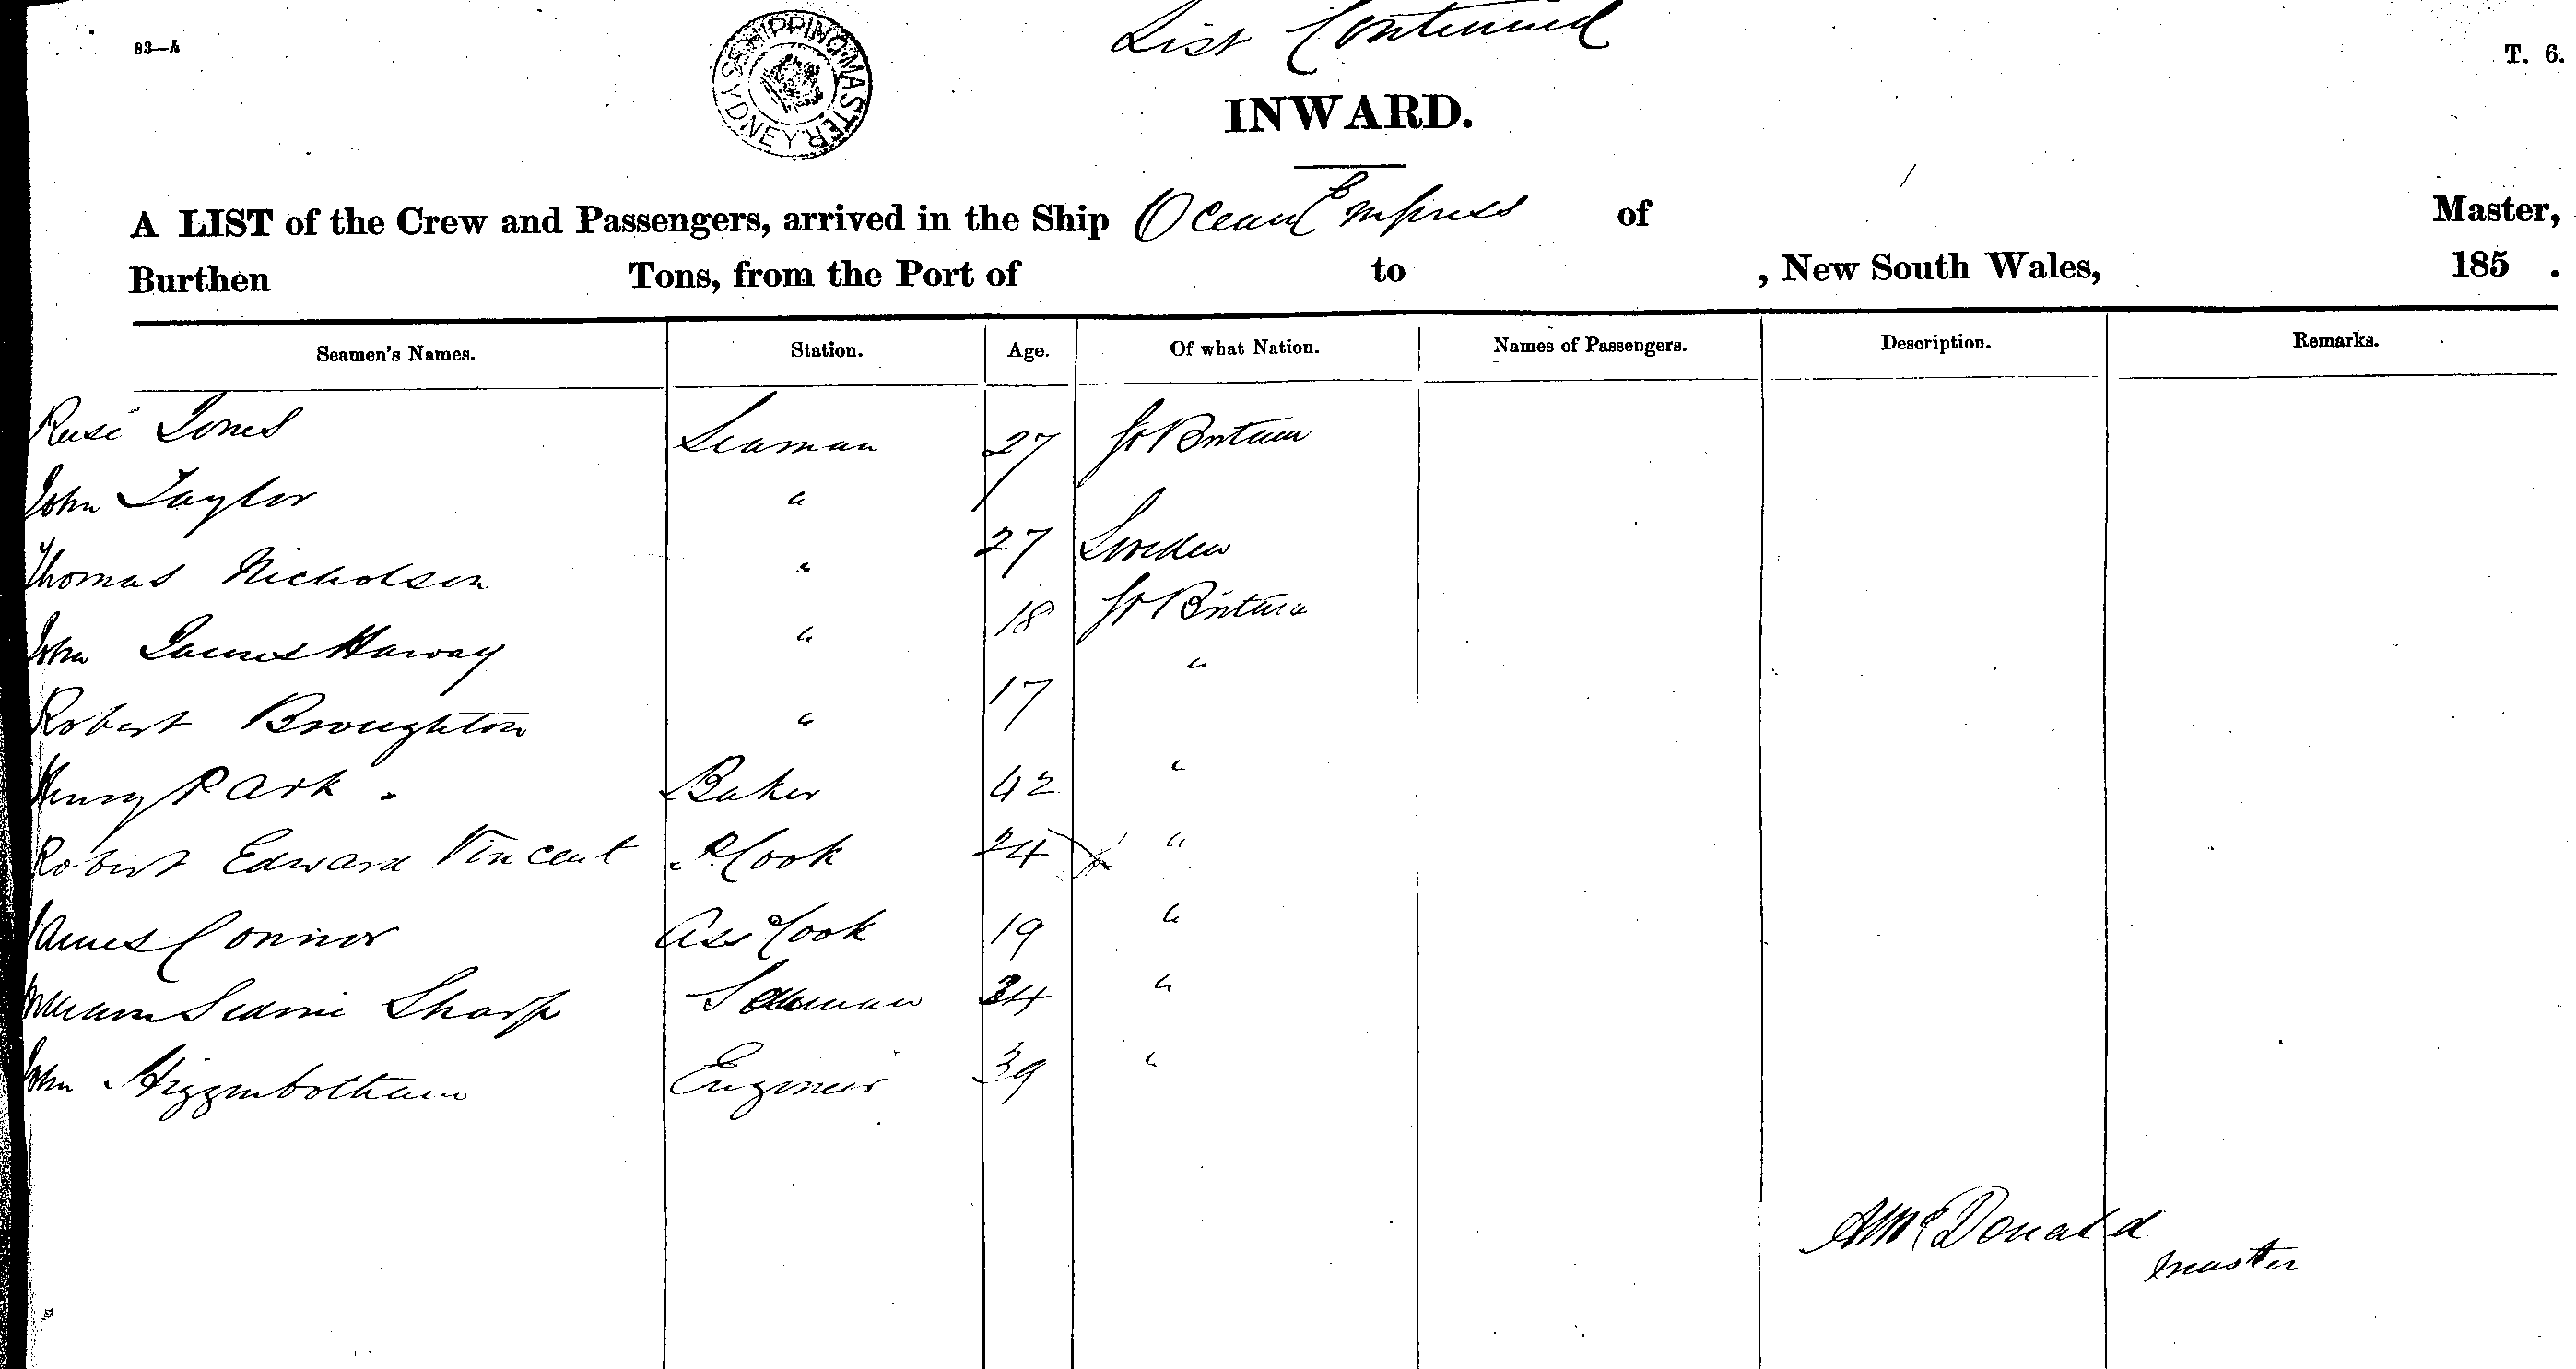 List Continued
83—A
SHIPPING MASTER SYDNEY
T. 6.
INWARD.
A LIST of the Crew and Passengers, arrived in the Ship Ocean Empress of Master,
Burthen Tons, from the Port of to , New South Wales, 185 .
Seamen's Names. Station. Age. Of what Nation. Names of Passengers. Description. Remarks.
Jones Seaman 27 Gt Britain
John Taylor "
27 Sweden
Thomas Nicholson "
18 Gt Britain
John James "
"
17
Robert Broughton "
Henry Park Baker 42 "
Robert Edward Vincent Cook 24 "
James Connor Ass Cook 19 "
William Sharp Seaman 34 "
John Higginbotham Engineer 39 "
A McDonald
master